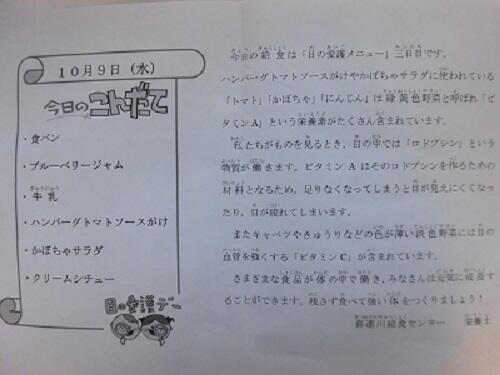 10月9日（水）
今日のこんだて
・食パン
・ブルーベリージャム
・牛乳
・ハンバーグトマトソースがけ
・かぼちゃサラダ
・クリームシチュー
目の愛護デー
今日の給食は「目の愛護メニュー」三日目です。
ハンバーグトマトソースがけやかぼちゃサラダに使われている
『トマト』『かぼちゃ』『にんじん』は緑黄色野菜と呼ばれ「ビ
タミンA」という栄養素がたくさん含まれています。
私たちがものを見るとき、目の中では「ロドプシン」という
物質が働きます。ビタミンAはそのロドプシンを作るための
材料となるため、足りなくなってしまうと目が見えにくくなっ
たり、目が疲れてしまいます。
またキャベツやきゅうりなどの色が薄い淡色野菜には目の
血管を強くする「ビタミンC」が含まれています。
さまざまな食品が体の中で働き、みなさんは元気に成長す
ることができます。残さず食べて強い体をつくりましょう！
喜連川給食センター　栄養士